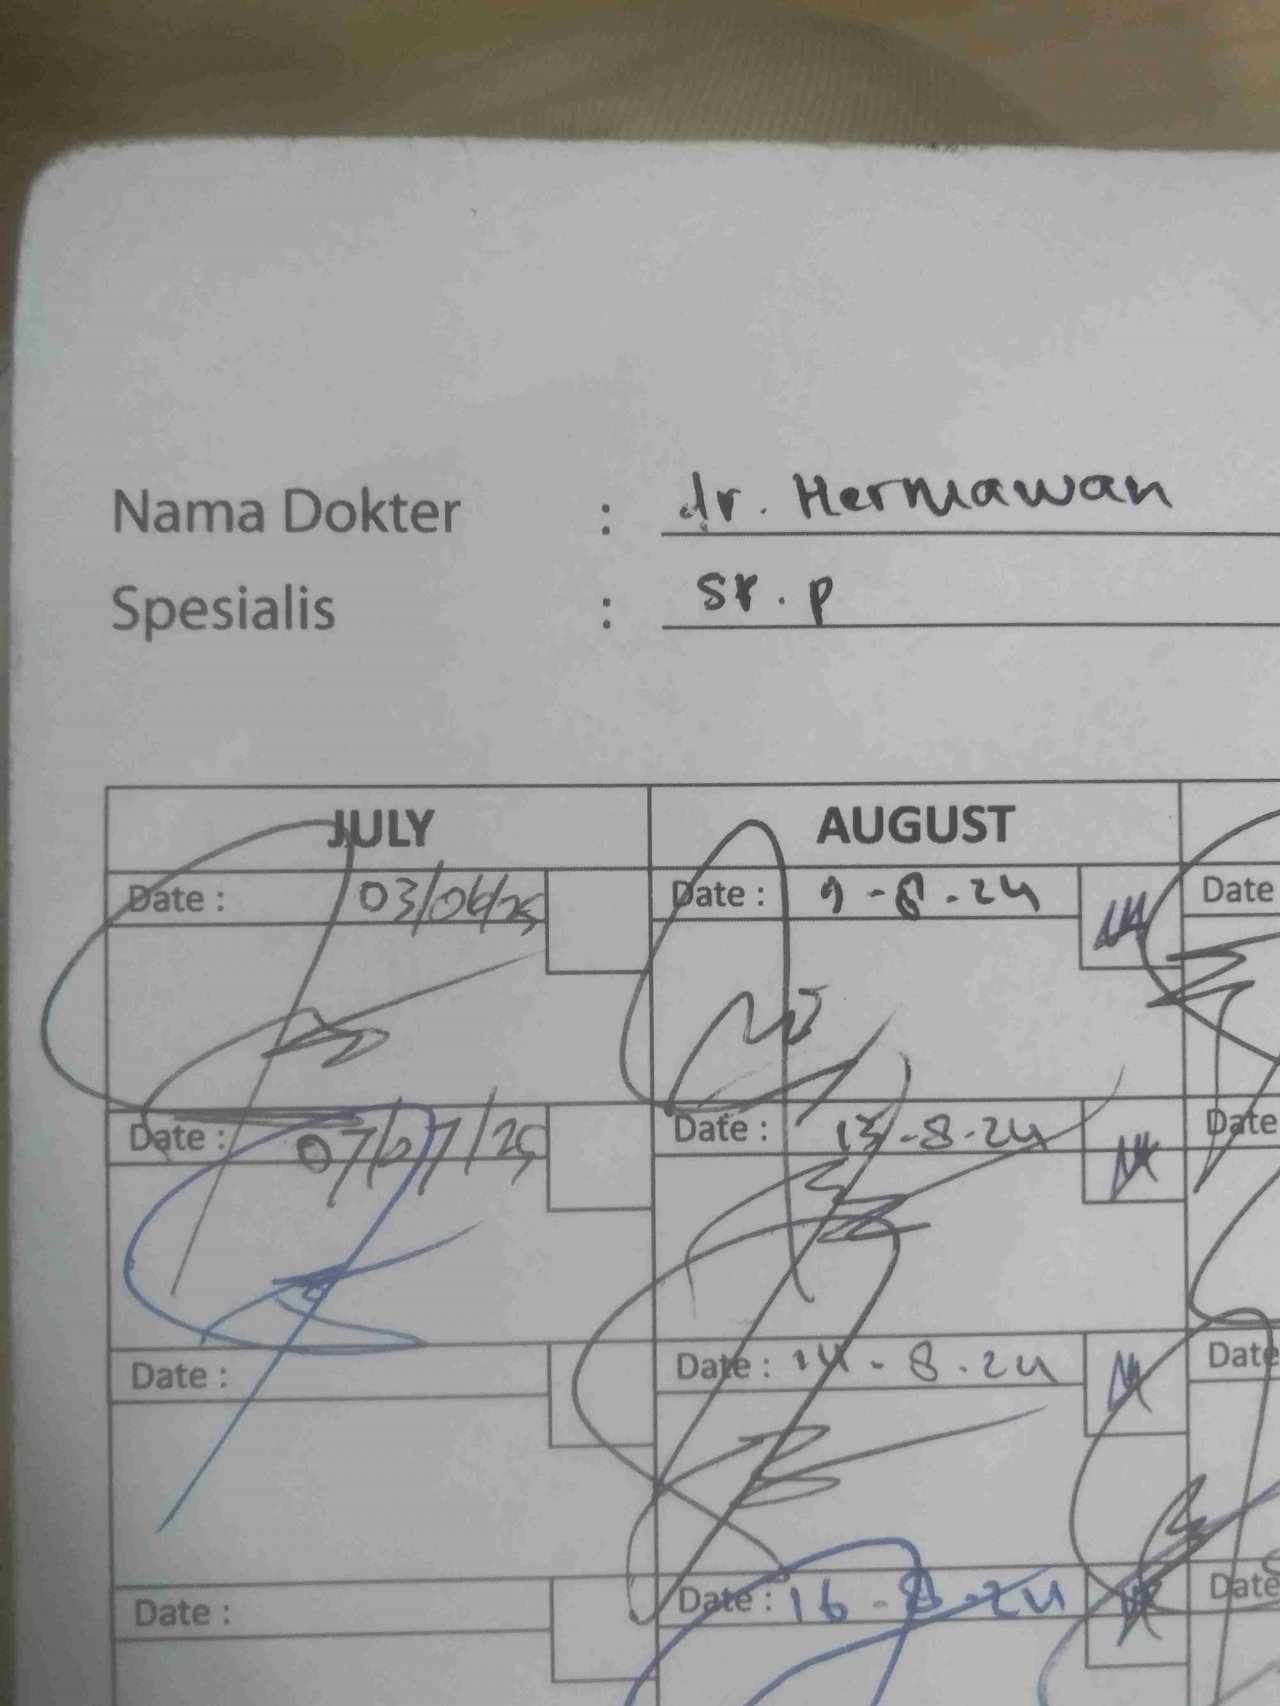 Nama Dokter : dr. Hermawan
Spesialis : Sp. P
JULY AUGUST
Date : 03/06/25 Date : 9-8-24 Date
Date : 07/07/25 Date : 13-8-24 Date
Date : Date : 14-8-24 Date
Date : Date : 16-8-24 Date